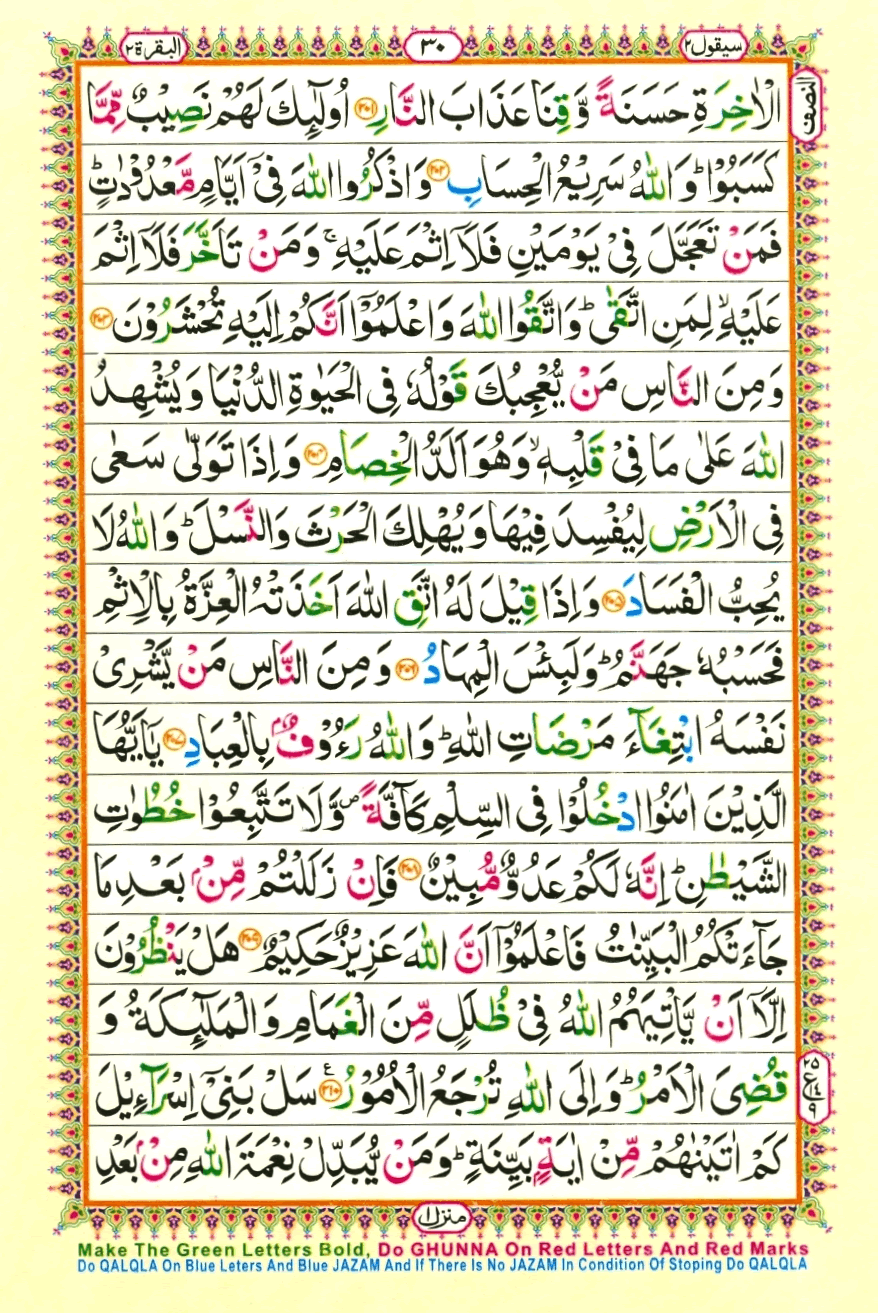 سیقول ۲
۳۰
البقرة ۲
النصف
الْاٰخِرَةِ حَسَنَةً وَّقِنَا عَذَابَ النَّارِ ﴿۲۰۱﴾ اُولٰٓئِكَ لَهُمْ نَصِیْبٌ مِّمَّا
كَسَبُوْا ؕ وَاللّٰهُ سَرِیْعُ الْحِسَابِ ﴿۲۰۲﴾ وَاذْكُرُوا اللّٰهَ فِیْۤ اَیَّامٍ مَّعْدُوْدٰتٍ ؕ
فَمَنْ تَعَجَّلَ فِیْ یَوْمَیْنِ فَلَاۤ اِثْمَ عَلَیْهِ ۚ وَمَنْ تَاَخَّرَ فَلَاۤ اِثْمَ
عَلَیْهِ ۙ لِمَنِ اتَّقٰی ؕ وَاتَّقُوا اللّٰهَ وَاعْلَمُوْۤا اَنَّكُمْ اِلَیْهِ تُحْشَرُوْنَ ﴿۲۰۳﴾
وَمِنَ النَّاسِ مَنْ یُّعْجِبُكَ قَوْلُهٗ فِی الْحَیٰوةِ الدُّنْیَا وَیُشْهِدُ
اللّٰهَ عَلٰی مَا فِیْ قَلْبِهٖ ۙ وَهُوَ اَلَدُّ الْخِصَامِ ﴿۲۰۴﴾ وَاِذَا تَوَلّٰی سَعٰی
فِی الْاَرْضِ لِیُفْسِدَ فِیْهَا وَیُهْلِكَ الْحَرْثَ وَالنَّسْلَ ؕ وَاللّٰهُ لَا
یُحِبُّ الْفَسَادَ ﴿۲۰۵﴾ وَاِذَا قِیْلَ لَهُ اتَّقِ اللّٰهَ اَخَذَتْهُ الْعِزَّةُ بِالْاِثْمِ
فَحَسْبُهٗ جَهَنَّمُ ؕ وَلَبِئْسَ الْمِهَادُ ﴿۲۰۶﴾ وَمِنَ النَّاسِ مَنْ یَّشْرِیْ
نَفْسَهُ ابْتِغَآءَ مَرْضَاتِ اللّٰهِ ؕ وَاللّٰهُ رَءُوْفٌۢ بِالْعِبَادِ ﴿۲۰۷﴾ یٰۤاَیُّهَا
الَّذِیْنَ اٰمَنُوا ادْخُلُوْا فِی السِّلْمِ كَآفَّةً ۪ وَّلَا تَتَّبِعُوْا خُطُوٰتِ
الشَّیْطٰنِ ؕ اِنَّهٗ لَكُمْ عَدُوٌّ مُّبِیْنٌ ﴿۲۰۸﴾ فَاِنْ زَلَلْتُمْ مِّنْۢ بَعْدِ مَا
جَآءَتْكُمُ الْبَیِّنٰتُ فَاعْلَمُوْۤا اَنَّ اللّٰهَ عَزِیْزٌ حَكِیْمٌ ﴿۲۰۹﴾ هَلْ یَنْظُرُوْنَ
اِلَّاۤ اَنْ یَّاْتِیَهُمُ اللّٰهُ فِیْ ظُلَلٍ مِّنَ الْغَمَامِ وَالْمَلٰٓئِكَةُ وَ
قُضِیَ الْاَمْرُ ؕ وَاِلَی اللّٰهِ تُرْجَعُ الْاُمُوْرُ ﴿۲۱۰﴾ ع سَلْ بَنِیْۤ اِسْرَآءِیْلَ
۲۵
ع ۱۴
۹
كَمْ اٰتَیْنٰهُمْ مِّنْ اٰیَةٍۭ بَیِّنَةٍ ؕ وَمَنْ یُّبَدِّلْ نِعْمَةَ اللّٰهِ مِنْۢ بَعْدِ
منزل ۱
Make The Green Letters Bold, Do GHUNNA On Red Letters And Red Marks
Do QALQLA On Blue Leters And Blue JAZAM And If There Is No JAZAM In Condition Of Stoping Do QALQLA